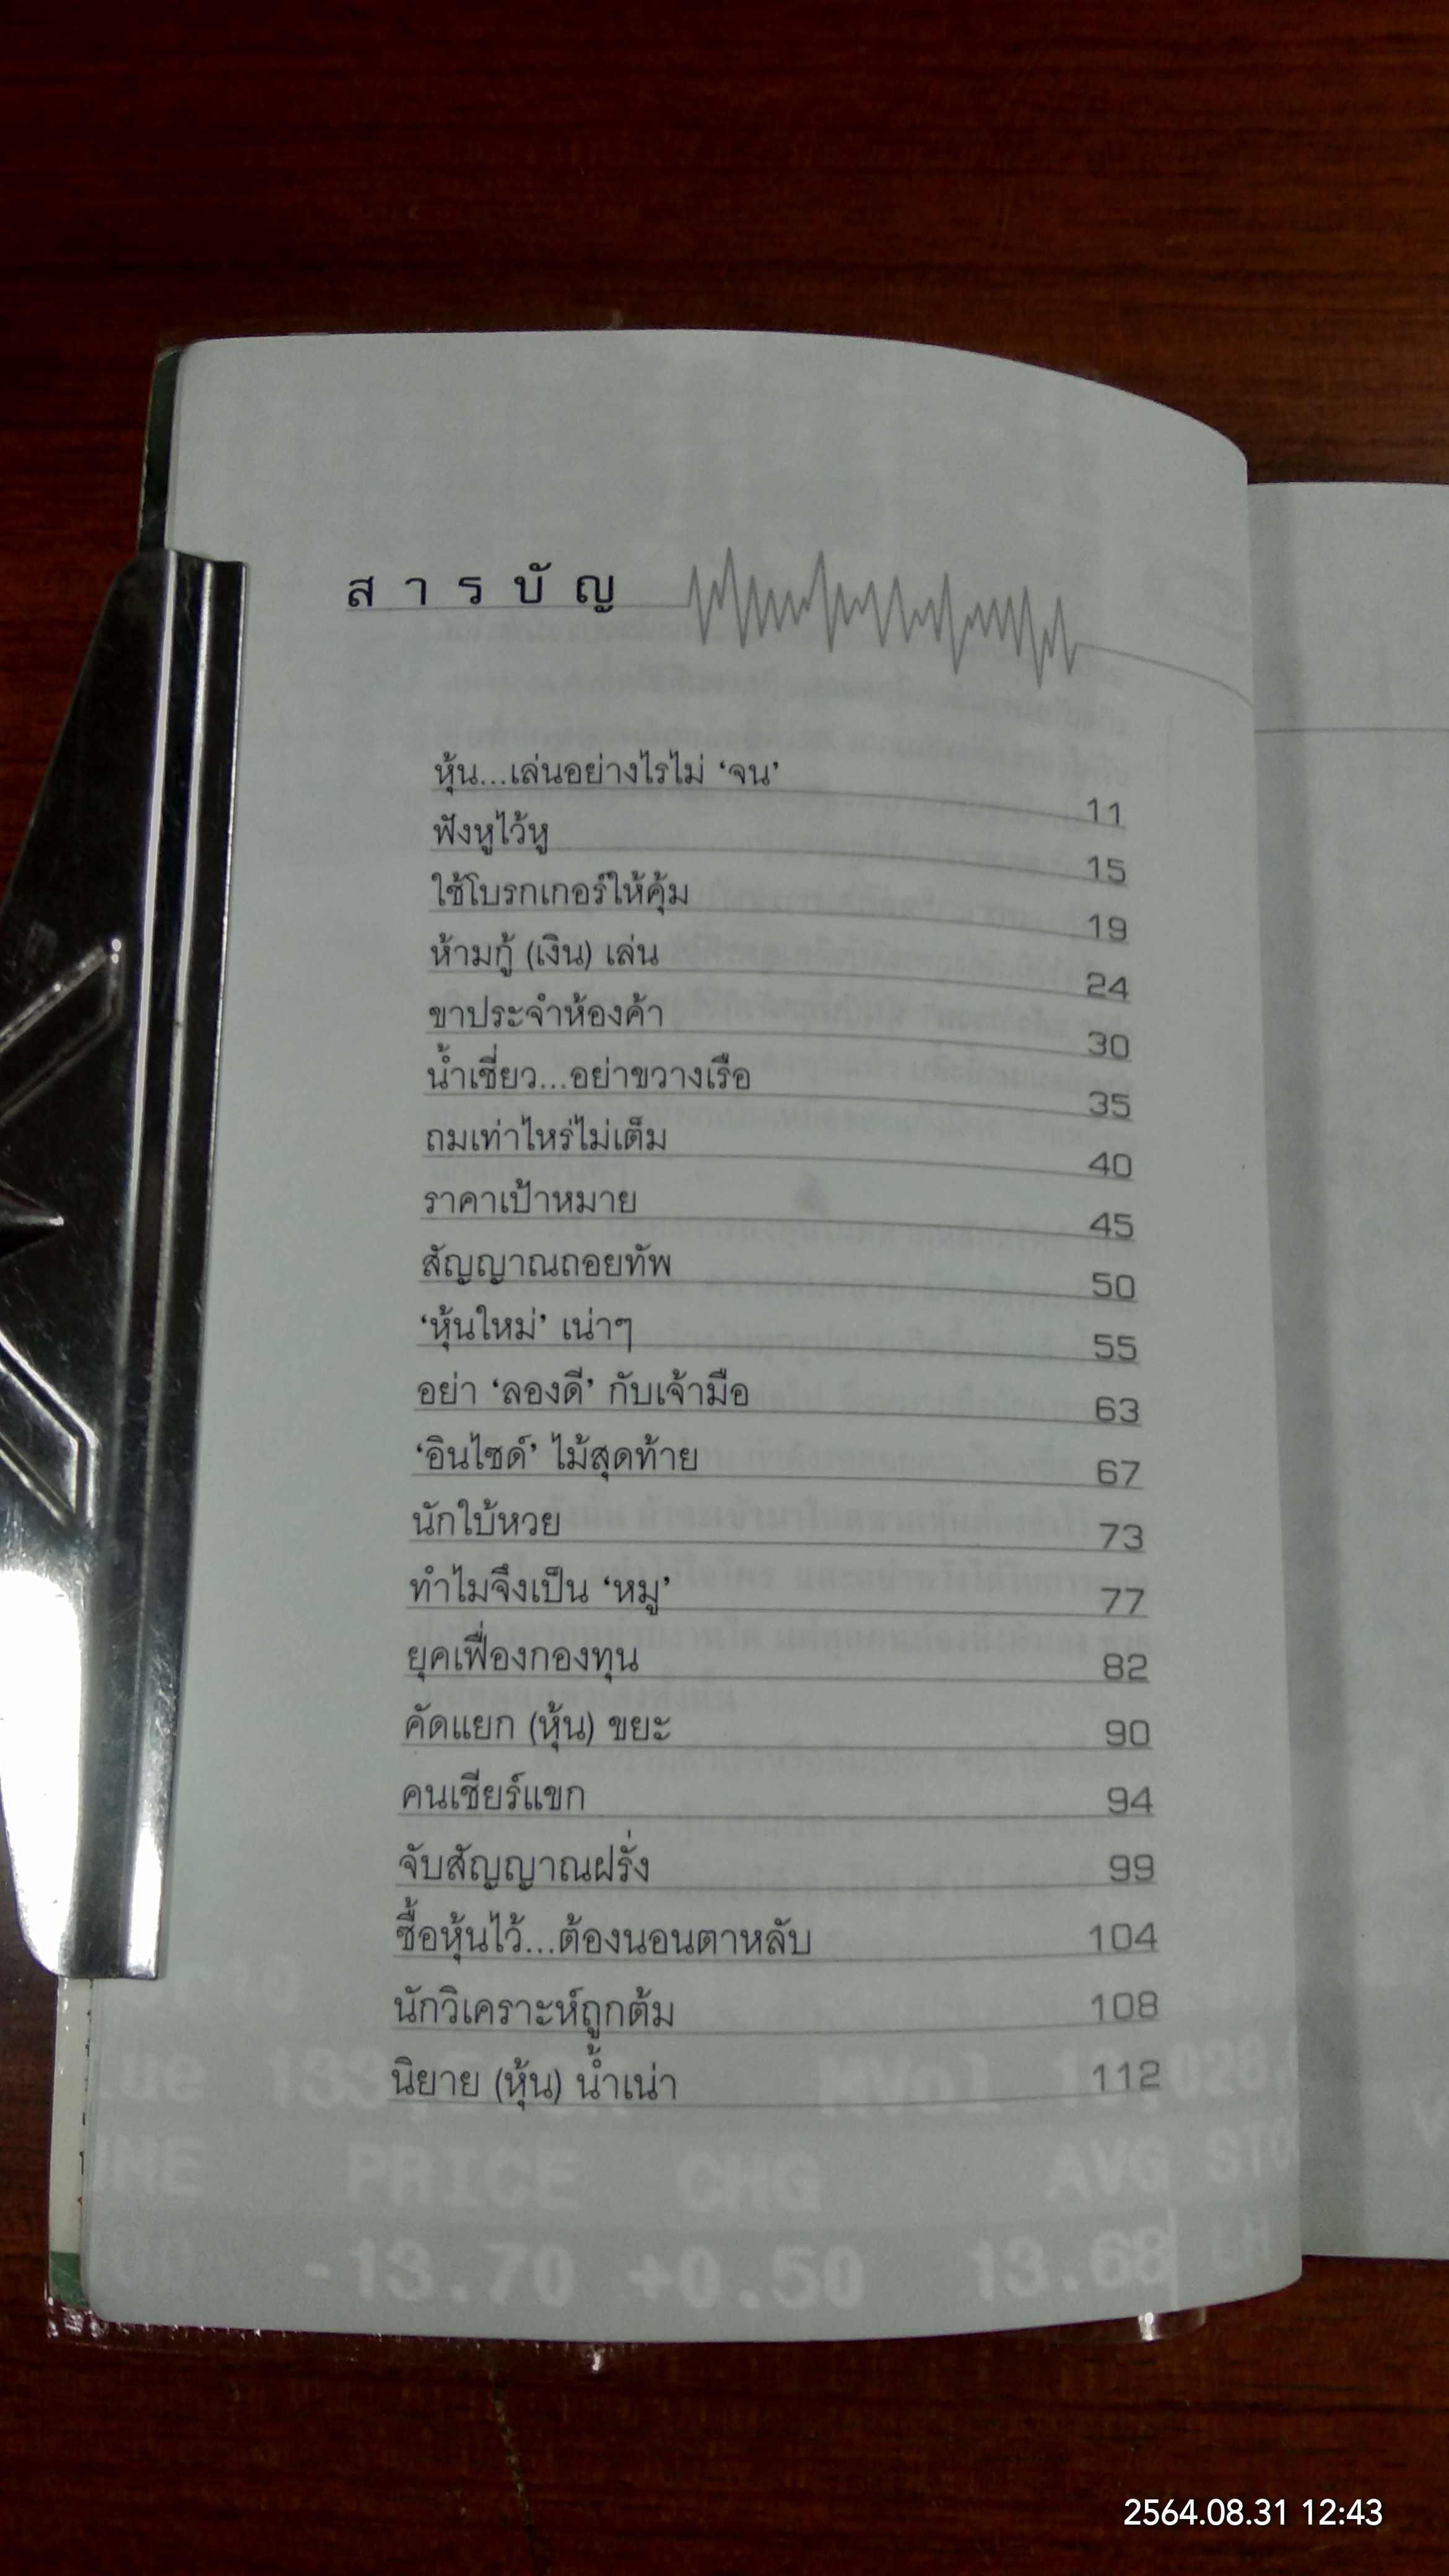 สารบัญ
หุ้น...เล่นอย่างไรไม่ ‘จน’ 11
ฟังหูไว้หู 15
ใช้โบรกเกอร์ให้คุ้ม 19
ห้ามกู้ (เงิน) เล่น 24
ขาประจำห้องค้า 30
น้ำเชี่ยว...อย่าขวางเรือ 35
ถมเท่าไหร่ไม่เต็ม 40
ราคาเป้าหมาย 45
สัญญาณถอยทัพ 50
‘หุ้นใหม่’ เน่าๆ 55
อย่า ‘ลองดี’ กับเจ้ามือ 63
‘อินไซด์’ ไม้สุดท้าย 67
นักใบ้หวย 73
ทำไมจึงเป็น ‘หมู’ 77
ยุคเฟื่องกองทุน 82
คัดแยก (หุ้น) ขยะ 90
คนเชียร์แขก 94
จับสัญญาณฝรั่ง 99
ซื้อหุ้นไว้...ต้องนอนตาหลับ 104
นักวิเคราะห์ถูกต้ม 108
นิยาย (หุ้น) น้ำเน่า 112
PRICE CHG AVG
-13.70 +0.50 13.68 LH
2564.08.31 12:43